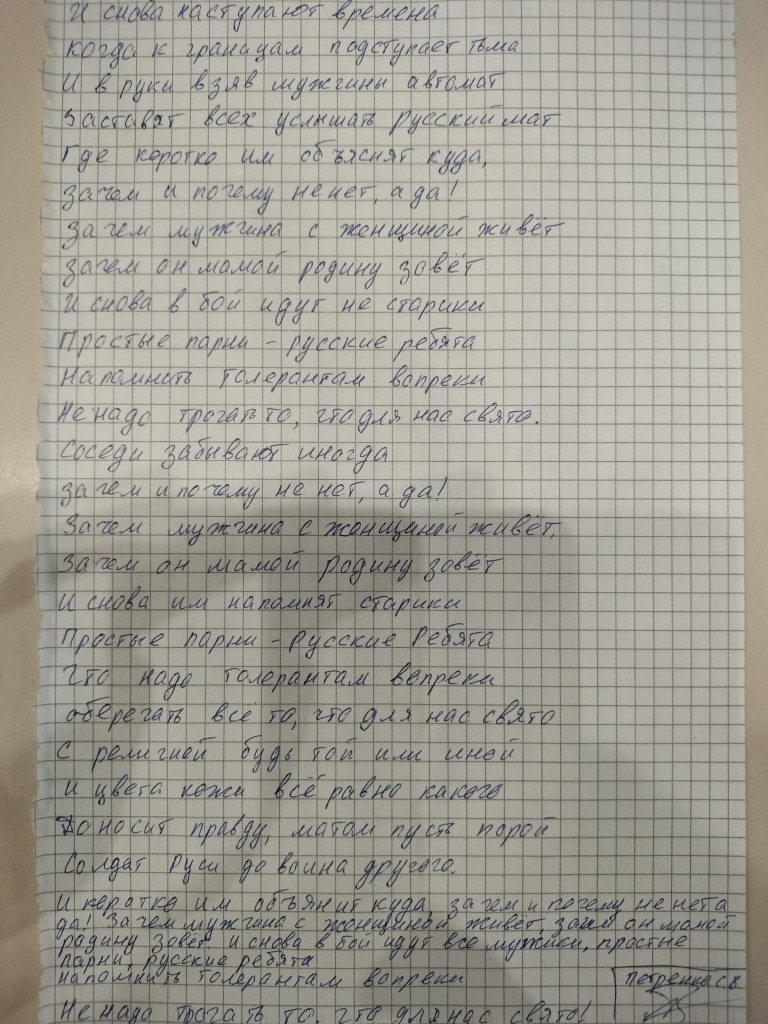 И снова наступают времена
когда к границам подступает тьма
И в руки взяв мужчины автомат
Заставят всех услышать русский мат
Где коротко им объяснят куда,
зачем и почему не нет, а да!
Зачем мужчина с женщиной живёт
зачем он мамой родину зовёт
И снова в бой идут не старики
Простые парни - русские ребята
Напомнить толерантам вопреки
Не надо трогать то, что для нас свято.
Соседи забывают иногда
зачем и почему не нет, а да!
Зачем мужчина с женщиной живёт,
Зачем он мамой родину зовёт
И снова им напомнят старики
Простые парни - Русские Ребята
Что надо толерантам вопреки
оберегать всё то, что для нас свято
С религией будь той или иной
и цвета кожи всё равно какого
Доносит правду, матом пусть порой
Солдат Руси до воина другого.
И коротко им объянит куда, зачем и почему не нет а
да! Зачем мужчина с женщиной живёт, зачем он мамой
родину зовёт и снова в бой идут все мужики, простые
парни, русские ребята
напомнить толерантам вопреки
Не надо трогать то, что для нас свято!
Петренко С.В